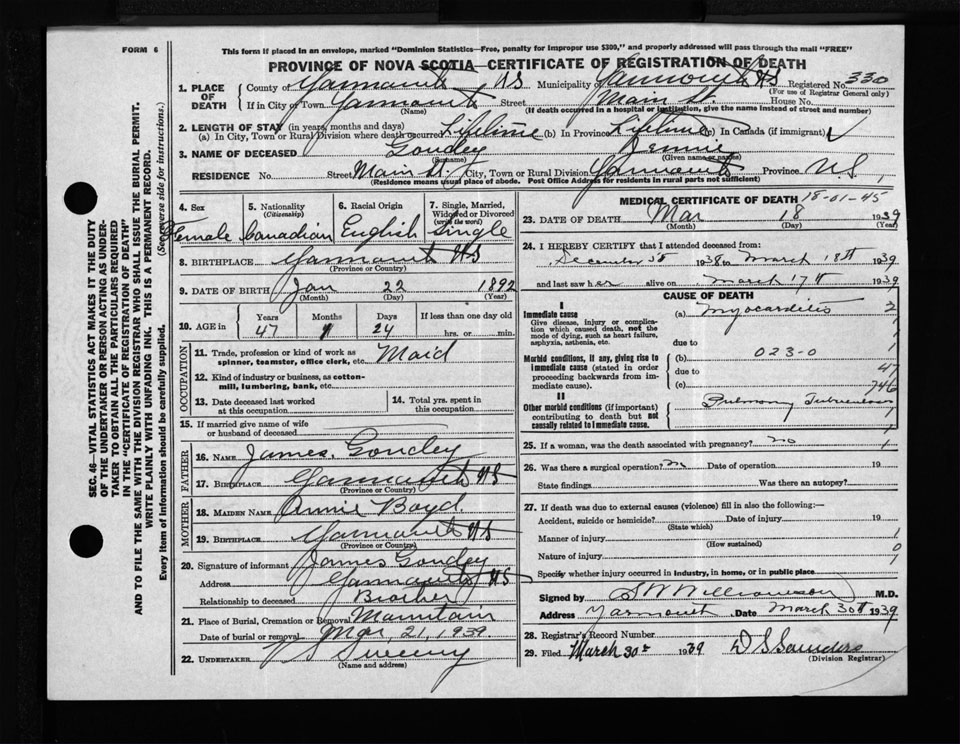 FORM 6
This form if placed in an envelope, marked "Dominion Statistics—Free, penalty for improper use $300," and properly addressed will pass through the mail "FREE"
PROVINCE OF NOVA SCOTIA—CERTIFICATE OF REGISTRATION OF DEATH
1. PLACE OF DEATH County of Yarmouth NS Municipality of Yarmouth NS Registered No. 330
(For use of Registrar General only)
If in City or Town Yarmouth Street Main St. House No.
(Name) (If death occurred in a hospital or institution, give the name instead of street and number)
2. LENGTH OF STAY (in years, months and days)
(a) In City, Town or Rural Division where death occurred Lifetime (b) In Province Lifetime (c) In Canada (if immigrant)
3. NAME OF DECEASED Goudey Jennie
(Surname) (Given name or names)
RESIDENCE No. Street Main St. City, Town or Rural Division Yarmouth Province N.S.
(Residence means usual place of abode. Post Office Address for residents in rural parts not sufficient)
4. Sex Female
5. Nationality (Citizenship) Canadian
6. Racial Origin English
7. Single, Married, Widowed or Divorced (write the word) Single
8. BIRTHPLACE Yarmouth NS
(Province or Country)
9. DATE OF BIRTH Jan 22 1892
(Month) (Day) (Year)
10. AGE in Years Months Days If less than one day old
47 1 24 hrs. or min.
OCCUPATION
11. Trade, profession or kind of work as spinner, teamster, office clerk, etc. Maid
12. Kind of industry or business, as cotton-mill, lumbering, bank, etc.
13. Date deceased last worked at this occupation
14. Total yrs. spent in this occupation
15. If married give name of wife or husband of deceased
FATHER
16. NAME James Goudey
17. BIRTHPLACE Yarmouth NS
(Province or Country)
MOTHER
18. MAIDEN NAME Annie Boyd
19. BIRTHPLACE Yarmouth NS
(Province or Country)
20. Signature of informant James Goudey
Address Yarmouth NS
Relationship to deceased Brother
21. Place of Burial, Cremation or Removal Mountain
Date of burial or removal Mar, 21, 1939.
22. UNDERTAKER V S Sweeny
(Name and address)
MEDICAL CERTIFICATE OF DEATH 18-01-45
23. DATE OF DEATH Mar 18 1939
(Month) (Day) (Year)
24. I HEREBY CERTIFY that I attended deceased from:
December 1938 to March 18th 1939
and last saw her alive on March 17th 1939
CAUSE OF DEATH
I
Immediate cause (a) Myocarditis 2
Give disease, injury or complication which caused death, not the mode of dying, such as heart failure, asphyxia, asthenia, etc. 1
due to 1
Morbid conditions, if any, giving rise to immediate cause (stated in order proceeding backwards from immediate cause). (b) 023-0
due to 47
(c) 746
II
Other morbid conditions (if important) contributing to death but not causally related to immediate cause. Pulmonary Tuberculosis 1
25. If a woman, was the death associated with pregnancy? no 1
26. Was there a surgical operation? no Date of operation 19
State findings Was there an autopsy?
27. If death was due to external causes (violence) fill in also the following:—
Accident, suicide or homicide? Date of injury 19
(State which)
Manner of injury 1
(How sustained)
Nature of injury 0
Specify whether injury occurred in industry, in home, or in public place 1
Signed by S W Williamson M.D.
Address Yarmouth Date March 30th 1939
28. Registrar's Record Number
29. Filed March 30th 1939 D S Saunders
(Division Registrar)
SEC. 46—VITAL STATISTICS ACT MAKES IT THE DUTY
OF THE UNDERTAKER OR PERSON ACTING AS UNDER-
TAKER TO OBTAIN ALL THE PARTICULARS REQUIRED
IN THE "CERTIFICATE OF REGISTRATION OF DEATH"
AND TO FILE THE SAME WITH THE DIVISION REGISTRAR WHO SHALL ISSUE THE BURIAL PERMIT.
WRITE PLAINLY WITH UNFADING INK. THIS IS A PERMANENT RECORD.
Every item of information should be carefully supplied. (See reverse side for instructions.)